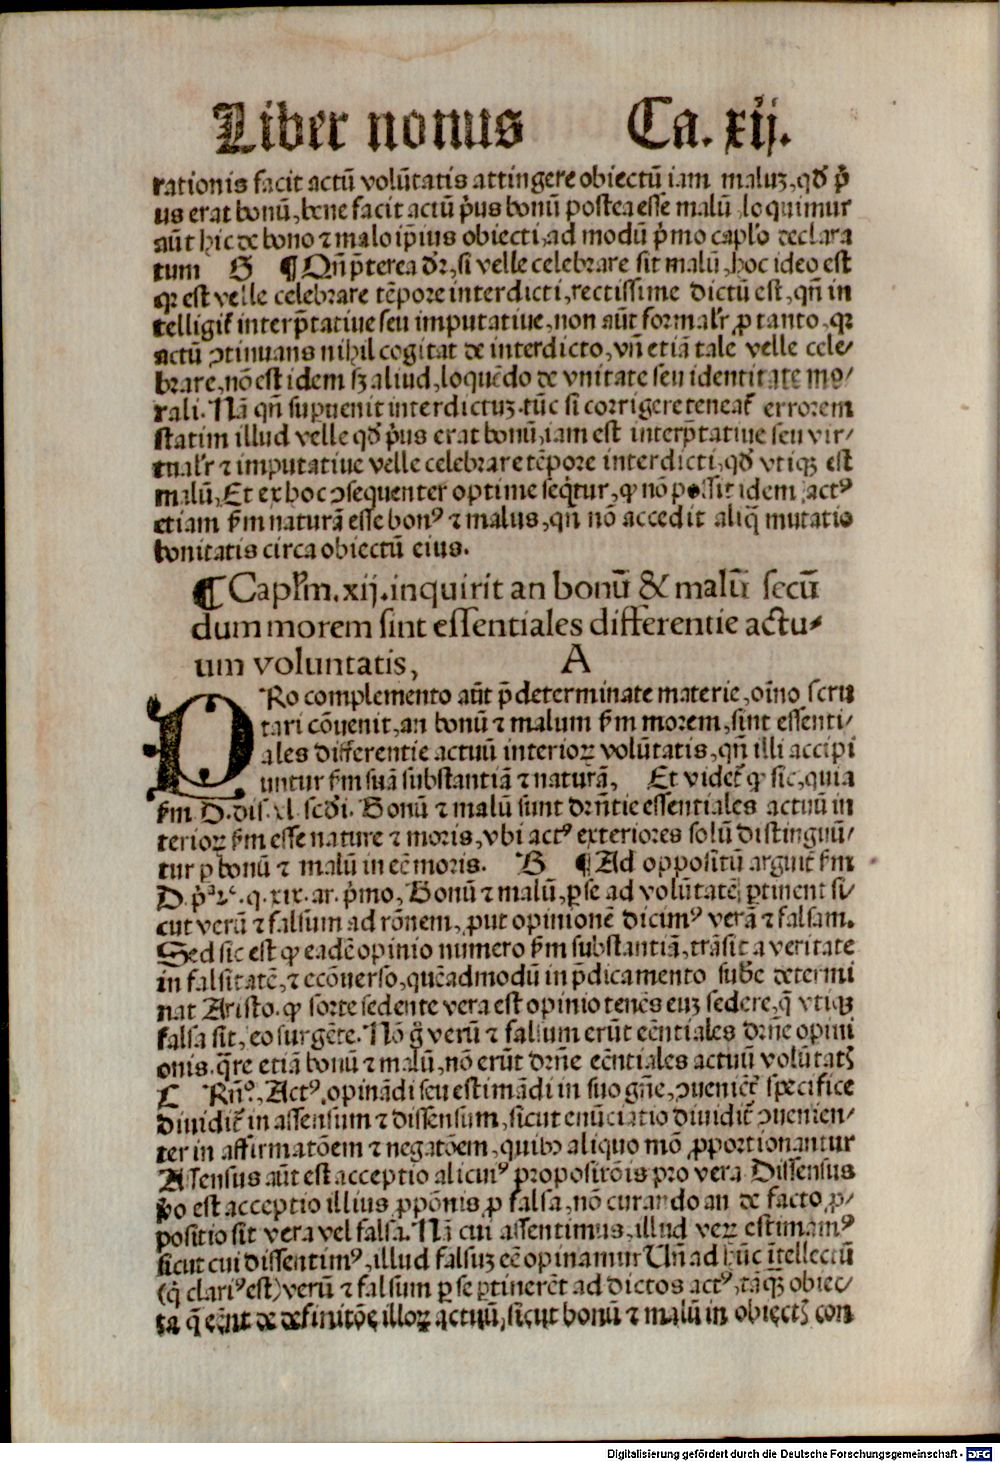 Liber nonus Ca. xij.
rationis facit actū volūtatis attingere obiectū iam maluꝫ, qď p̄
us erat bonū, bene facit actū p̄us bonū postea esse malū, loquimur
aūt hic de bono ⁊ malo ip̄ius obiecti, ad modū p̄mo cap̄lo declara
tum G ¶ Qn̄ p̄terea dr̄, si velle celebrare sit malū, hoc ideo est
qꝛ est velle celebrare tēpore interdicti, rectissime dictū est, qn̄ in
telligit̄ interp̄tatiue seu imputatiue, non aūt formalr̄, ꝓ tanto, qꝛ
actū ꝯtinuans nihil cogitat de interdicto, vn̄ etiā tale velle cele⸗
brare, nō est idem sꝫ aliud, loquēdo de vnitate seu identitate mo⸗
rali. Nā qn̄ supuenit interdictuꝫ. tūc si corrigere teneat̄ errorem
statim illud velle qď p̄us erat bonū, iam est interp̄tatiue seu vir⸗
tualr̄ ⁊ imputatiue velle celebrare tēpore interdicti, qď vtiqꝫ est
malū, Et ex hoc ꝯsequenter optime seqt̄ur, ꝙ nō possit idem actꝰ
etiam s̄m naturā esse bonꝰ ⁊ malus, qn̄ nō accedit aliq̄ mutatio
bonitatis circa obiectū eius.
¶ Cap̄lm. xij. inquirit an bonū & malū secū
dum morem sint essentiales differentie actu⸗
um voluntatis, A
PRo complemento aūt p̄determinate materie, oīno scru
tari cōuenit, an bonū ⁊ malum s̄m morem, sint essenti⸗
ales differentie actuū interioꝝ volūtatis, qn̄ illi accipi
untur s̄m suā substantiā ⁊ naturā, Et videt̄ ꝙ sic, quia
s̄m D. dis. xl. scďi. Bonū ⁊ malū sunt drn̄tie essentiales actuū in
terioꝝ s̄m esse nature ⁊ moris, vbi actꝰ exteriores solū distinguū⸗
tur ꝑ bonū ⁊ malū in eē moris. B ¶ Ad oppositū arguit̄ s̄m
D. p̄ᵃ ꝛᶜ. q. xix. ar. p̄mo, Bonū ⁊ malū, ꝑ se ad volūtatē ꝑtinent si⸗
cut verū ⁊ falsum ad rōnem, ꝓut opinionē dicimꝰ verā ⁊ falsam.
Sed sic est ꝙ eadē opinio numero s̄m substantiā, trāsit a veritate
in falsitatē, ⁊ ecōuerso, quēadmodū in p̄dicamento sub̄e determi
nat Aristo. ꝙ sorte sedente vera est opinio tenēs euꝫ sedere, q̄ vtiqꝫ
falsa sit, eo surgēte. Nō g̊ verū ⁊ falsum erūt eēntiales drn̄e opini
onis. q̄re etiā bonū ⁊ malū, nō erūt drn̄e eēntiales actuū volūtatꝭ
C Rn̄°, Actꝰ opinādi seu estimādi in suo gn̄e, ꝯueniēt̄ specifice
diuidit̄ in assensum ⁊ dissensum, sicut enūciatio diuidit̄ ꝯuenien⸗
ter in affirmatōem ⁊ negatōem, quibꝰ aliquo mō ꝓportionantur
Assensus aūt est acceptio alicuiꝰ propositōis pro vera Dissensus
ꝟo est acceptio illius ꝓpōnis ꝓ falsa, nō curando an de facto ꝓ⸗
positio sit vera vel falsa. Nā cui assentimus, illud veꝝ estimamꝰ
sicut cui dissentimꝰ, illud falsuꝫ eē opinamur Vn̄ ad hūc ītellectū
(q̄ clariꝰ est) verū ⁊ falsum ꝑ se ꝑtinerēt ad dictos actꝰ, tāqꝫ obiec⸗
ta q̄ eēnt de definitōe illoꝝ actuū, sicut bonū ⁊ malū in obiectꝭ con
Digitalisierung gefördert durch die Deutsche Forschungsgemeinschaft - DFG